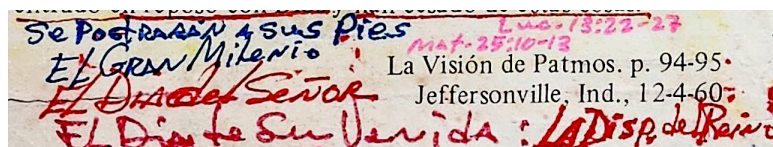 Se Postrarán a sus Pies
Luc. 13:22-27
Mat. 25:10-13
El Gran Milenio :
La Visión de Patmos. p. 94-95.
El Dia del Señor
Jeffersonville, Ind., 12-4-60.
El Dia de Su Venida : La Disp. del Reino